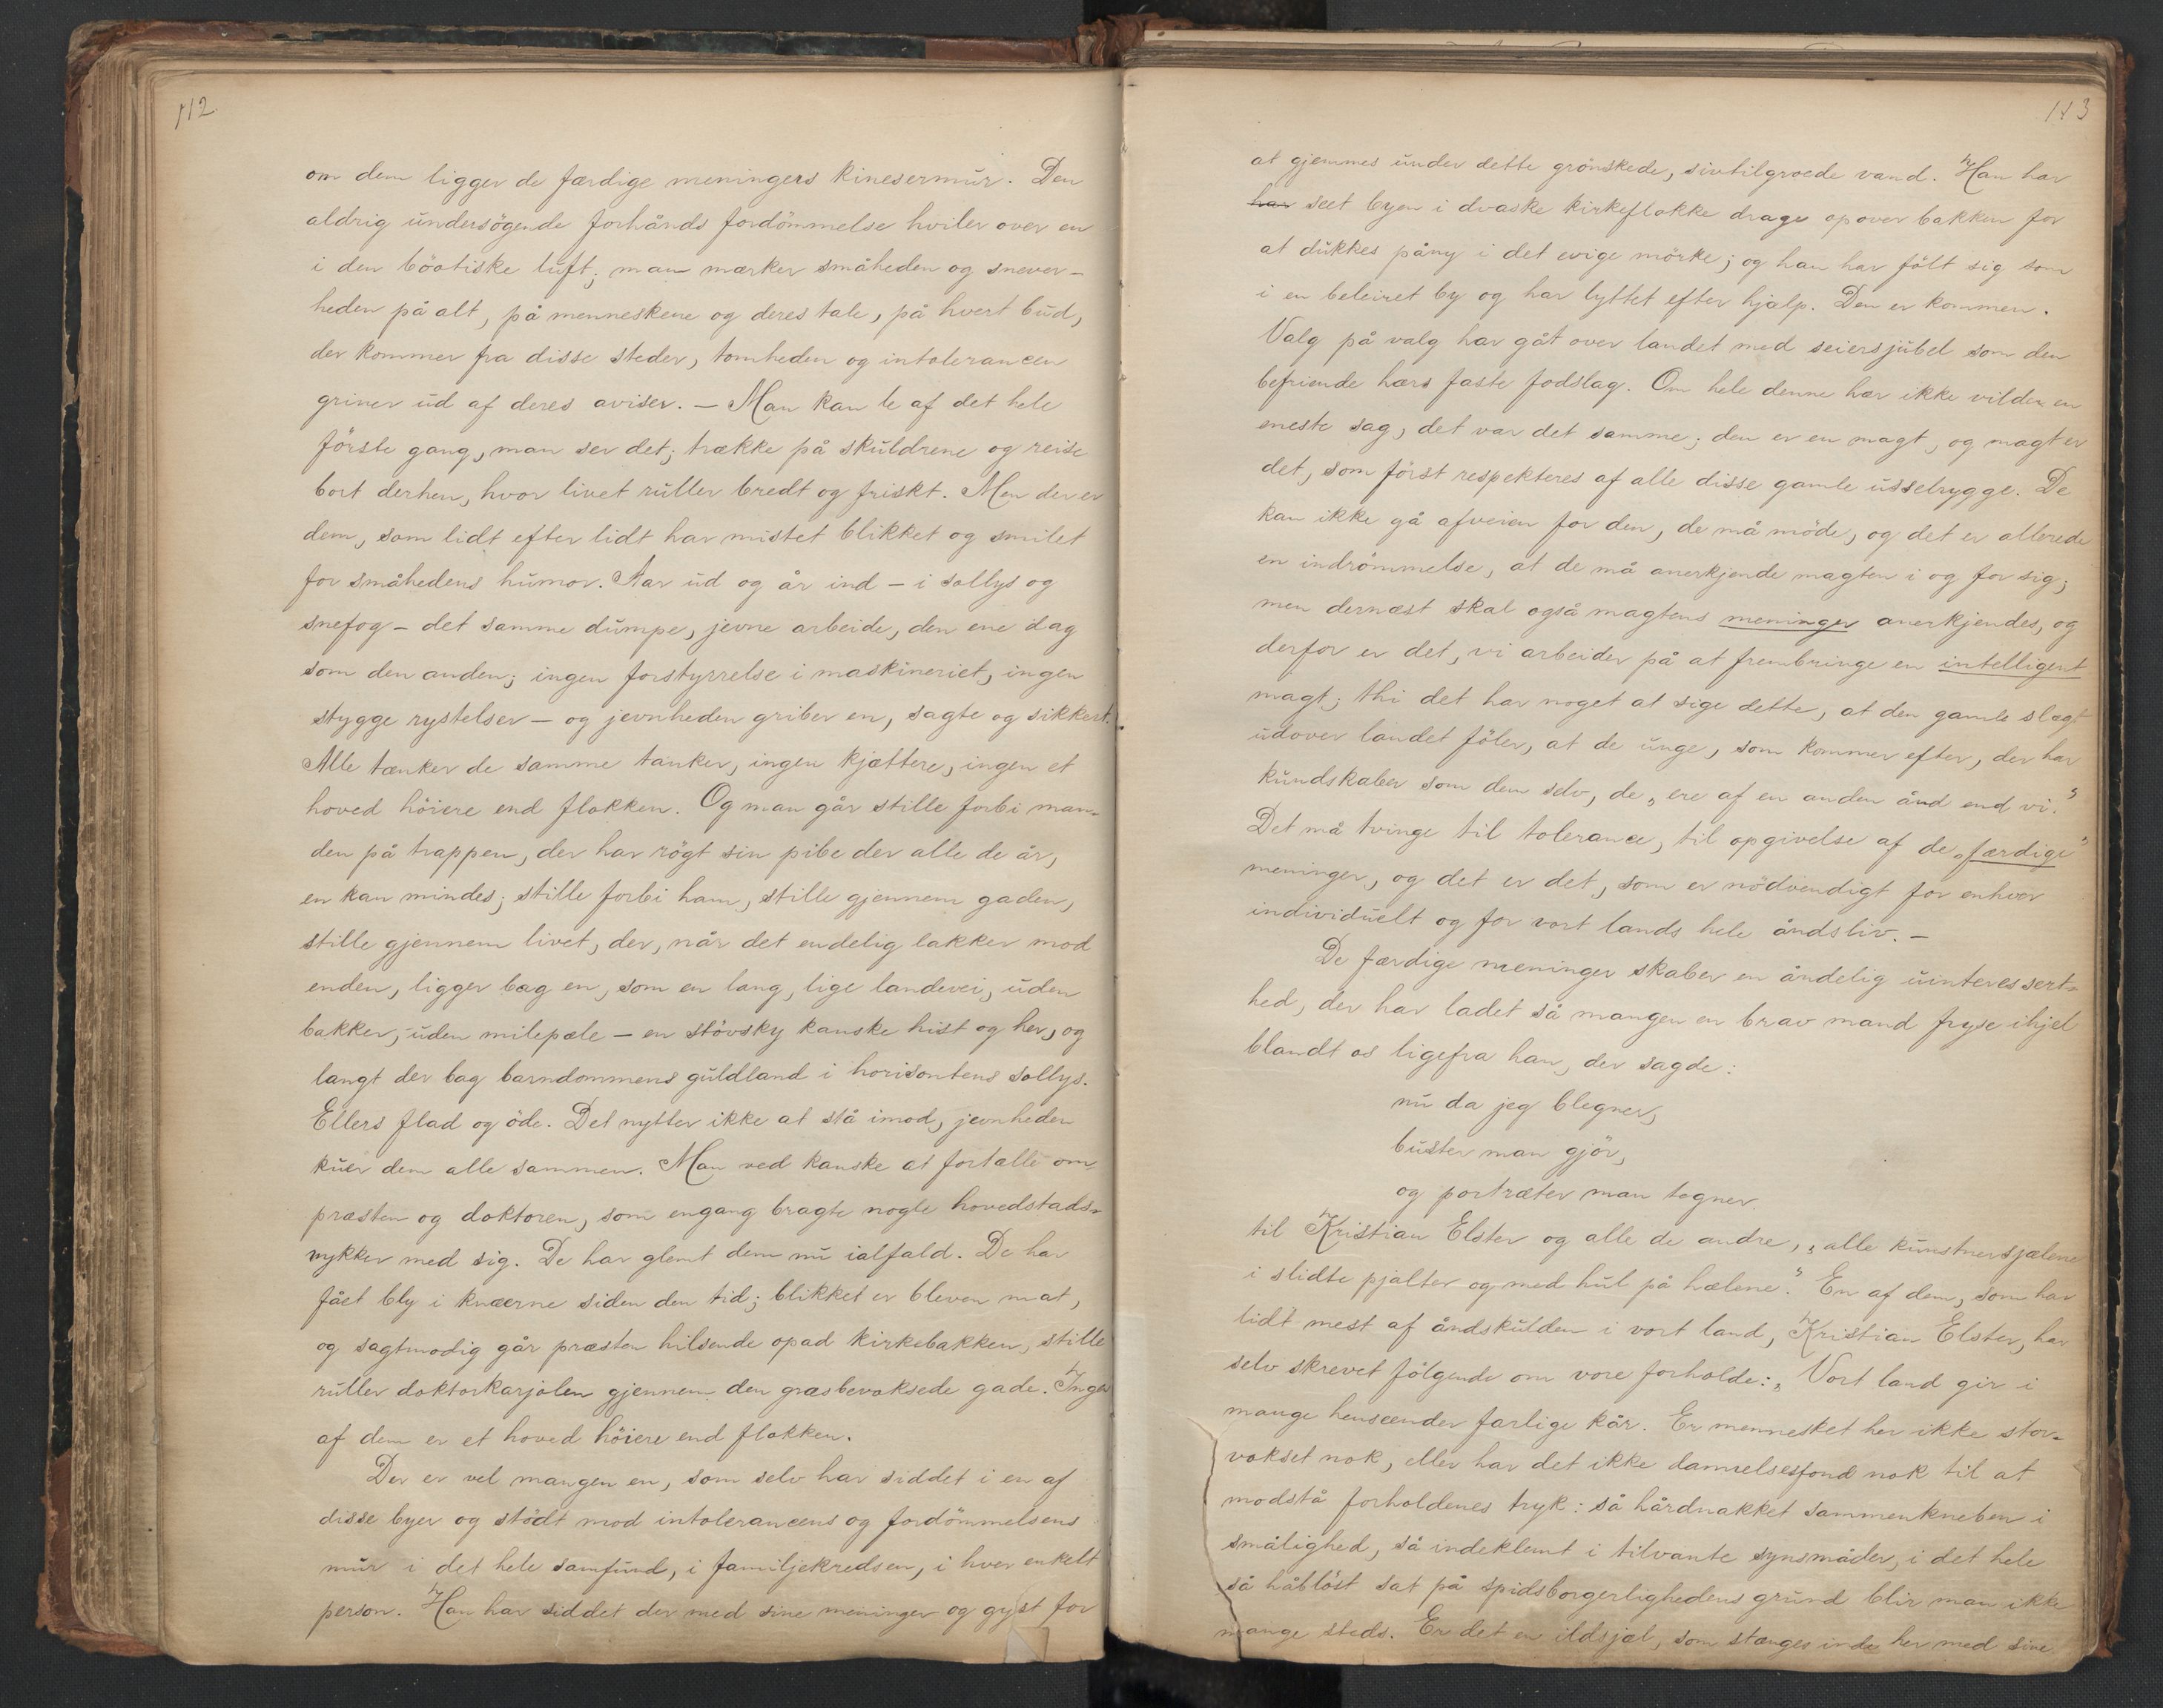 112.
om dem ligger de færdige meningers kinesermur. Den
aldrig undersögende forhånds fordömmelse hviler over en
i den böotiske luft; man mærker småheden og snever-
heden på alt, på menneskene og deres tale, på hvert bud,
der kommer fra disse steder, tomheden og intolerancen
griner ud af deres aviser. — Man kan le af det hele
förste gang, man ser det; trække på skuldrene og reise
bort derhen, hvor livet ruller bredt og friskt. Men der er
dem, som lidt efter lidt har mistet blikket og smilet
for småhedens humor. Aar ud og år ind — i sollys og
snefog — det samme dumpe, jevne arbeide, den ene dag
som den anden; ingen forstyrrelse i maskineriet, ingen
stygge rystelser — og jevnheden griber en, sagte og sikkert.
Alle tænker de samme tanker, ingen kjættere, ingen et
hoved höiere end flokken. Og man går stille forbi man-
den på trappen, der har rögt sin pibe der alle de år,
en kan mindes; stille forbi ham, stille gjennem gaden,
stille gjennem livet, der, når det endelig lakker mod
enden, ligger bag en, som en lang, lige landevei, uden
bakker, uden milepæle — en stövsky kanske hist og her, og
langt der bag barndommens guldland i horisontens sollys.
Ellers flad og öde. Det nytter ikke at stå imod, jevnheden
kuer dem alle sammen. Man ved kanske at fortælle om
præsten og doktoren, som engang bragte nogle hovedstads-
nykker med sig. De har glemt dem nu ialfald. De har
fået bly i knæerne siden den tid; blikket er bleven mat,
og sagtmodig går præsten hilsende opad kirkebakken, stille
ruller doktorkarjolen gjennem den græsbevoksede gade. Ingen
af dem er et hoved höiere end flokken.
Der er vel mangen en, som selv har siddet i en af
disse byer og stödt mod intolerancens og fordömmelsens
mur i det hele samfund, i familjekredsen, i hver enkelt
person. Han har siddet der med sine meninger og gyst for
113
at gjemmes under dette grönskede, sivtilgroede vand. Han har
har seet byen i dvaske kirkeflokke drage opover bakken for
at dukkes påny i det evige mörke; og han har fölt sig som
i en beleiret by og har lyttet efter hjælp. Den er kommen.
Valg på valg har gåt over landet med seiersjubel som den
befriende hærs faste fodslag. Om hele denne hær ikke vilde en
eneste sag, det var det samme; den er en magt, og magt er
det, som först respekteres af alle disse gamle usselrygge. De
kan ikke gå afveien for den, de må möde, og det er allerede
en indrömmelse, at de må anerkjende magten i og for sig;
men dernæst skal også magtens meninger anerkjendes, og
derfor er det, vi arbeider på at frembringe en intelligent
magt; thi det har noget at sige dette, at den gamle slægt
udover landet föler, at de unge, som kommer efter, der har
kundskaber som dem selv, de „ere af en anden ånd end vi."
Det må tvinge til tolerance, til opgivelse af de „færdige"
meninger, og det er det, som er nödvendigt for enhver
individuelt og for vort lands hele åndsliv. —
De færdige meninger skaber en åndelig uinteressert-
hed, der har ladet så mangen en brav mand fryse ihjel
blandt os ligefra han, der sagde:
nu da jeg blegner,
buster man gjör,
og portræter man tegner.
til Kristian Elster og alle de andre, „alle kunstnersjælene
i slidte pjalter og med hul på hælene". En af dem, som har
lidt mest af åndskulden i vort land, Kristian Elster, har
selv skrevet fölgende om vore forholde: „Vort land gir i
mange henseender farlige kår. Er mennesket her ikke stor-
vokset nok, eller har det ikke dannelsesfond nok til at
modstå forholdenes tryk: så hårdnakket sammenkneben i
smålighed, så indeklemt i tilvante synsmåder, i det hele
så håblöst sat på spidsborgerlighedens grund blir man ikke
mange steds. Er det en ildsjæl, som stænges inde her med sine